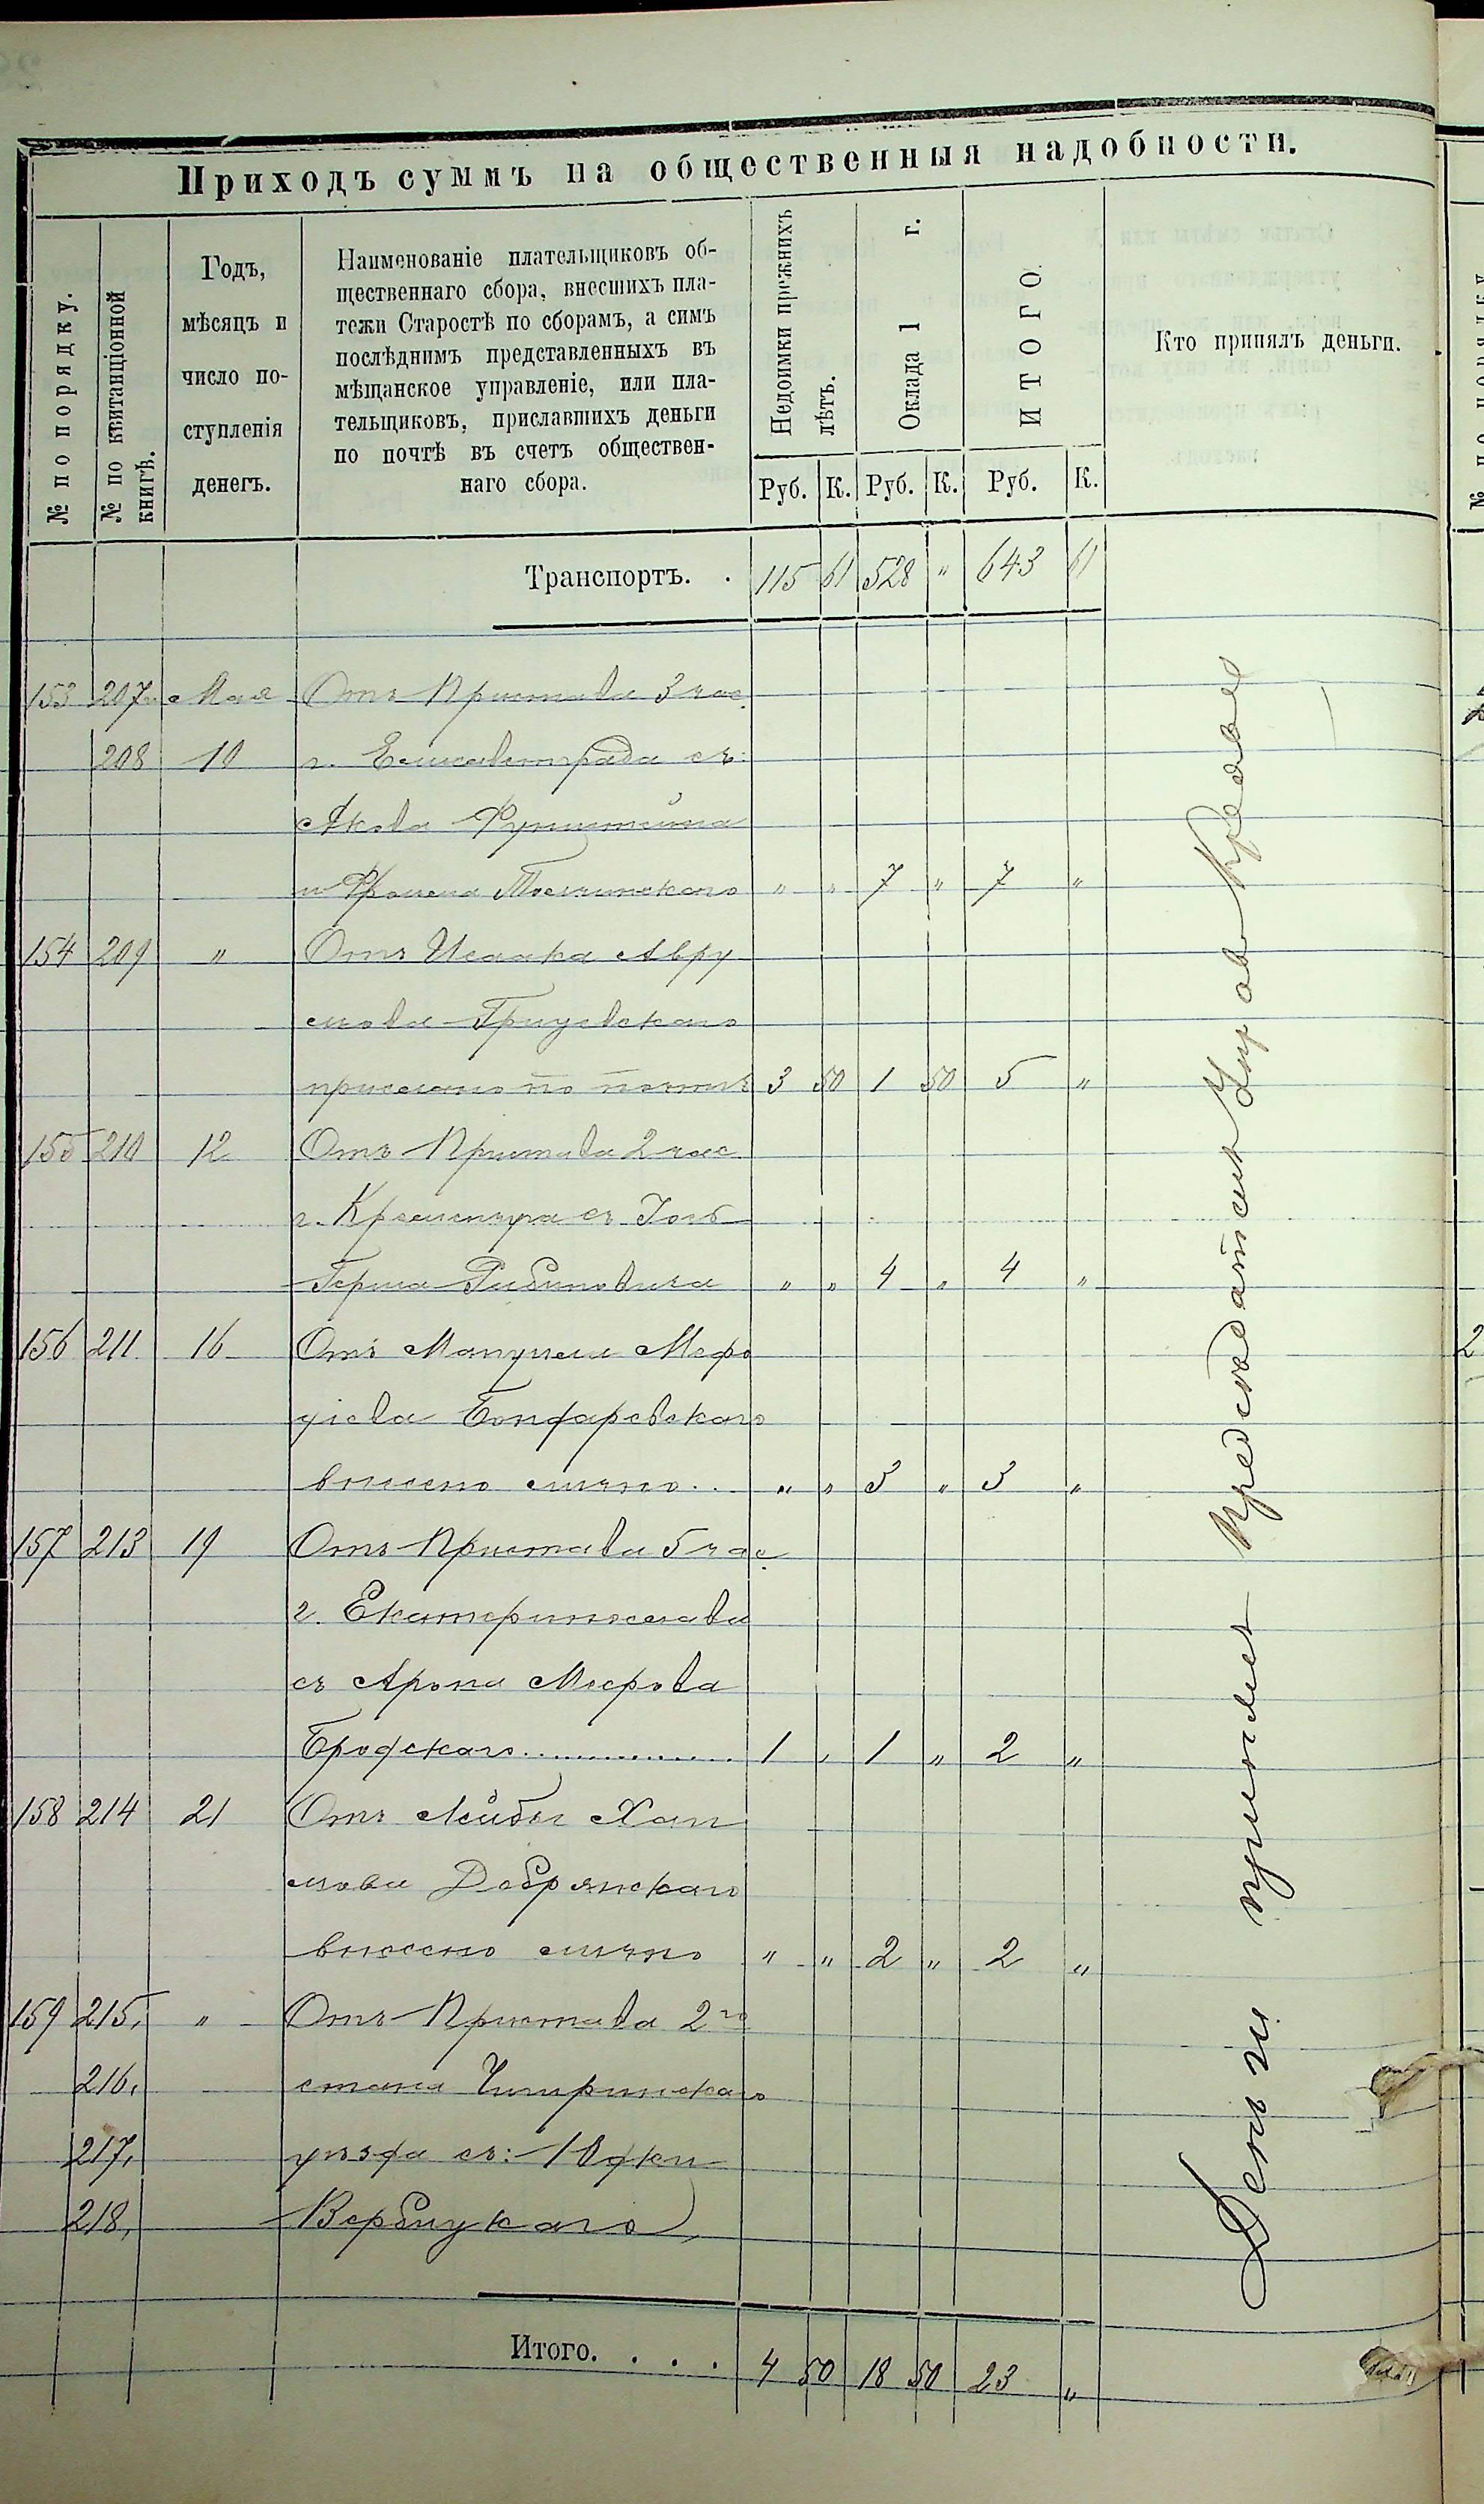 Приходъ суммъ на общественныя надобности.
№ по порядку.
№ по квитанціонной книгѣ.
Годъ, мѣсяцъ и число поступленія денегъ.
Наименованіе плательщиковъ об-
щественнаго сбора, внесшихъ пла-
тежи Старостѣ по сборамъ, а симъ
послѣднимъ представленныхъ въ
мѣщанское управленіе, или пла-
тельщиковъ, приславшихъ деньги
по почтѣ въ счетъ обществен-
наго сбора.
Недоимки прежнихъ лѣтъ.
Оклада 1 г.
ИТОГО.
Кто принялъ деньги.
Руб. К. Руб. К. Руб. К.
Транспортъ. . 115 61 528 " 643 61
153 207 Мая Отъ Пристава 3 час.
208 10 г. Елисаветграда съ:
Якова
и " " 7 " 7 "
154 209 " Отъ Исаака Авру
мова
прислано по почтѣ 3 50 1 50 5 "
155 210 12 Отъ Пристава 2 час
г. Кременчуга съ Іось
Герша Рабиновича " " 4 " 4 "
156 211 16 Отъ Мануила
Бондаревскаго
внесено лично.. " " 3 " 3 "
157 213 19 Отъ Пристава 5 час.
г. Екатеринослава
съ Арона Меерова
Бродскаго............... 1 " 1 " 2 "
158 214 21 Отъ Лейбы Хаи
мова Добрянскаго
внесено лично " " 2 " 2 "
159 215, " Отъ Пристава 2го
216, стана Чигиринскаго
217, уѣзда съ: Юдки
218, Вербицкаго
Итого. . . . 4 50 18 50 23 "
Деньги принялъ Предсѣдатель Управ